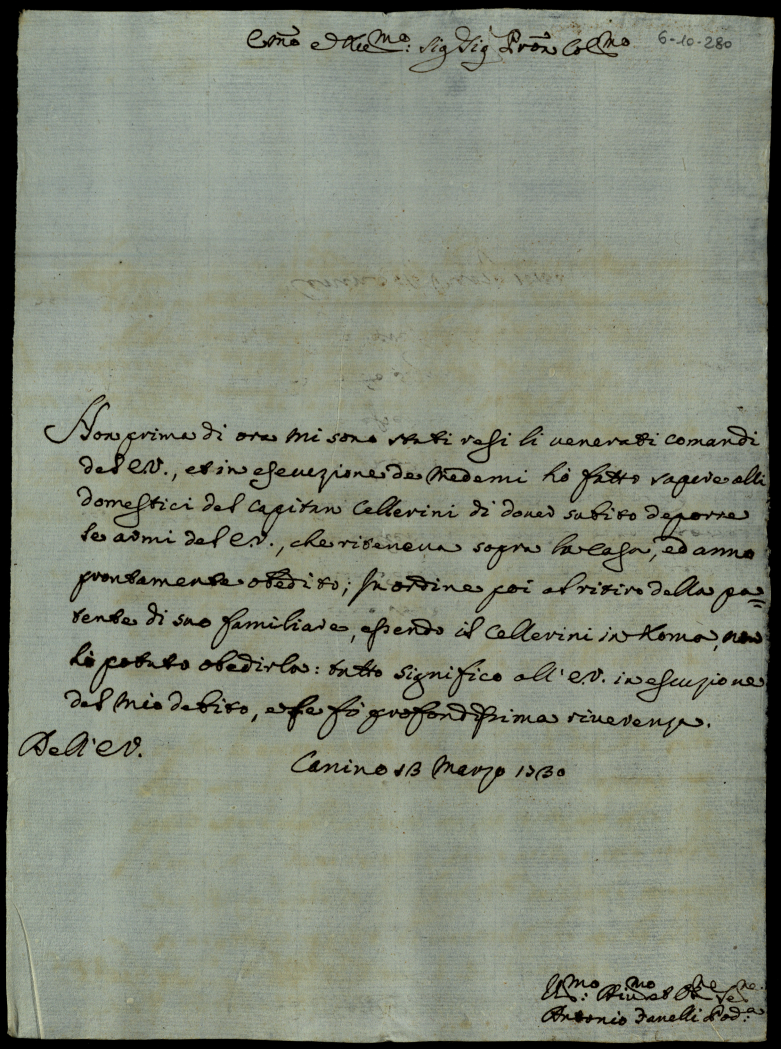 Em̃o e Re^mo: Sig Sig Pron̄ Col^mo
6-10-280
Non prima di ora mi sono stati resi li venerati comandi
del E.V., et in esecuzione de Medemi hò fatto sapere alli
domestici del Capitan Cellerini di dover subito deporre
le armi del E.V., che riteneva sopra la Casa, ed anno
prontamente obedito; In ordine poi al ritiro della pa=
tente di suo familiare, essendo il Cellerini in Roma, non
hò potuto obedirla: tutto significo all' E.V. in esecuzione
del mio debito, e fò profondissima riverenza.
Dell' E.V.
Canino 13 Marzo 1730
U^mo: D
Antonio Fanelli Pod^a: